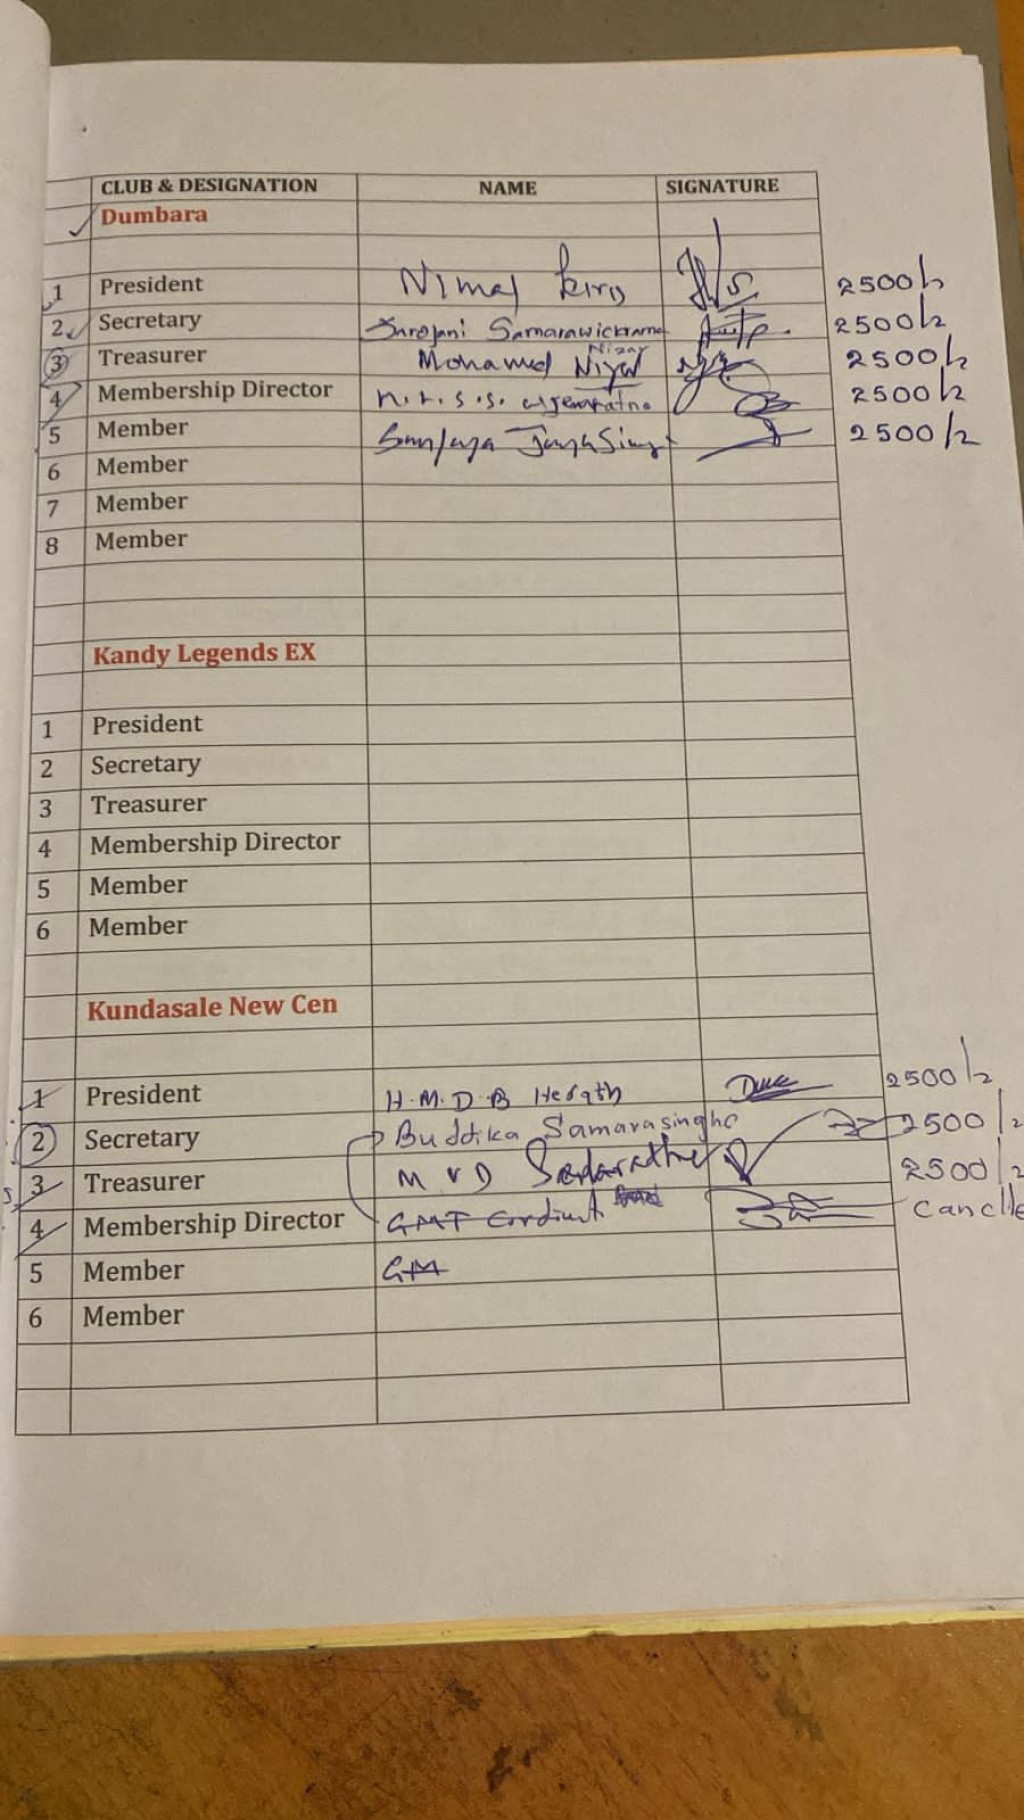 CLUB & DESIGNATION NAME SIGNATURE
Dumbara
1 President Nimal 2500/=
2 Secretary Sarojani Samarawickrama 2500/=
Nizar
3 Treasurer Mohamed 2500/=
4 Membership Director 2500/=
5 Member Sanjaya 2500/=
6 Member
7 Member
8 Member
Kandy Legends EX
1 President
2 Secretary
3 Treasurer
4 Membership Director
5 Member
6 Member
Kundasale New Cen
1 President H.M.D.B Herath 2500/=
2 Secretary Buddika Samarasingha 2500/=
3 Treasurer M V D 2500/=
4 Membership Director GMT Canclle
5 Member GM
6 Member